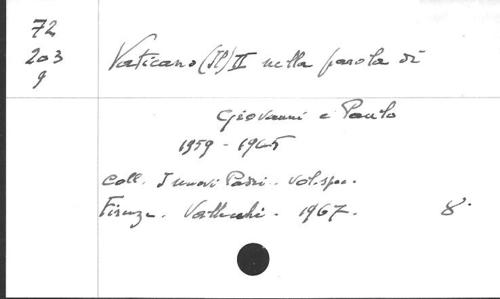 72
203
9
Vaticano (Il) II nella parola di
Giovanni e Paolo
1959 - 1965
Coll. I nuovi Padri. Vol. spec.
Firenze. Vallecchi. 1967. 8°